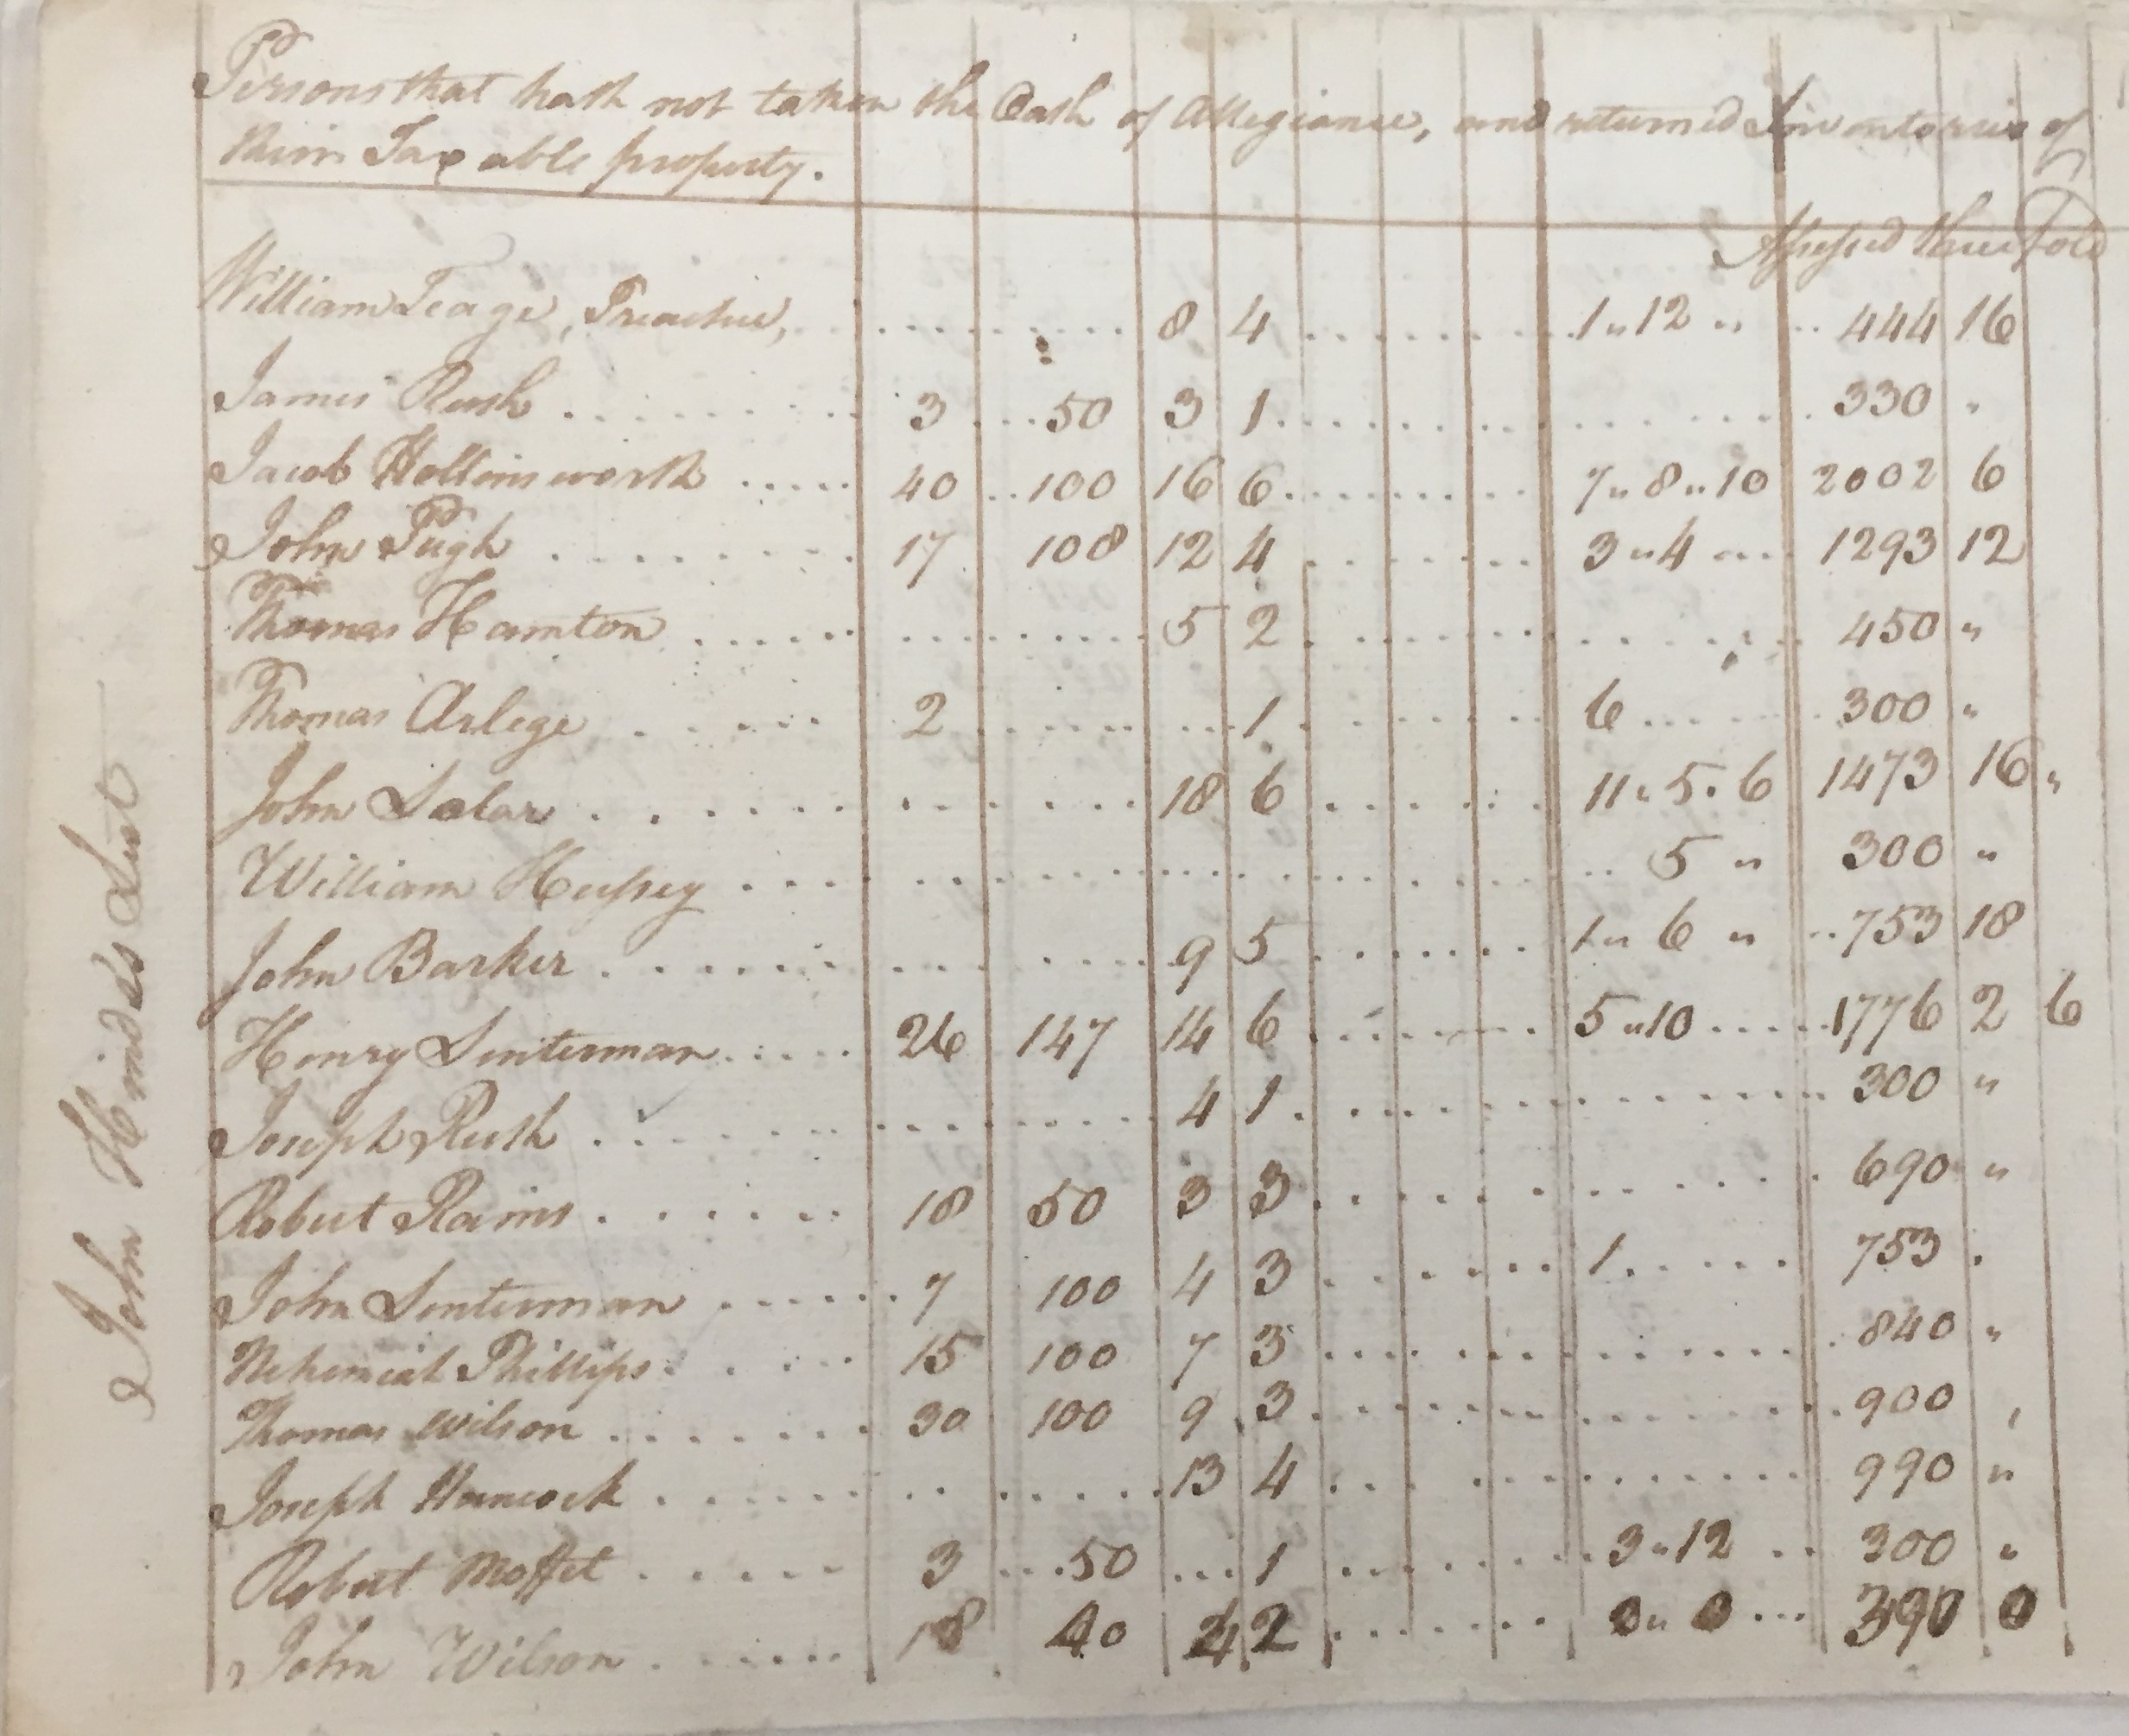 Persons that hath not taken the Oath of Allegiance, and returned Inventories of
their Taxable property.
Assessed three Fold
William Teage, Preacher, 8 4 1 " 12 " 444 16
James Rush 3 50 3 1 330 "
Jacob Hollinsworth 40 100 16 6 7 " 8 " 10 2002 6
John Pugh 17 108 12 4 3 " 4 " 1293 12
Thomas Hamton 5 2 450 "
Thomas Arlege 2 1 6 300 "
John Salar 18 6 11 " 5 " 6 1473 16 "
William Hussey 5 " 300 "
John Barker 9 5 1 " 6 " 753 18
Henry Sinterman 26 147 14 6 5 " 10 1776 2 6
Joseph Rush 4 1 300 "
Robert Rains 18 50 3 3 690 "
John Sinterman 7 100 4 3 1 753 "
Nehemiah Phillips 15 100 7 3 840 "
Thomas Wilson 30 100 9 3 900 "
Joseph Hancock 13 4 990 "
Robert Moffet 3 50 1 3 " 12 300 "
John Wilson 18 40 2 390 0
John Hinds's List